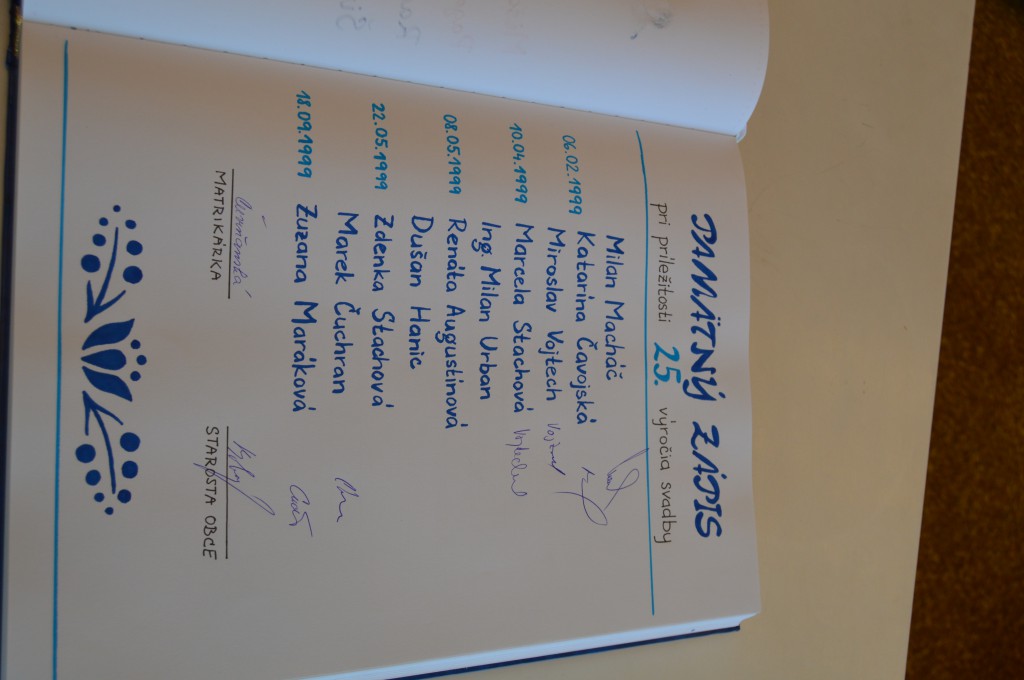 PAMÄTNÝ ZÁPIS
pri príležitosti 25. výročia svadby
Milan Macháč
06.02.1999 Katarína Čavojská
Miroslav Vojtech
10.04.1999 Marcela Stachová
Ing. Milan Urban
08.05.1999 Renáta Augustínová
Dušan Hanic
22.05.1999 Zdenka Stachová
Marek Čuchran
18.09.1999 Zuzana Maráková
MATRIKÁRKA STAROSTA OBCE